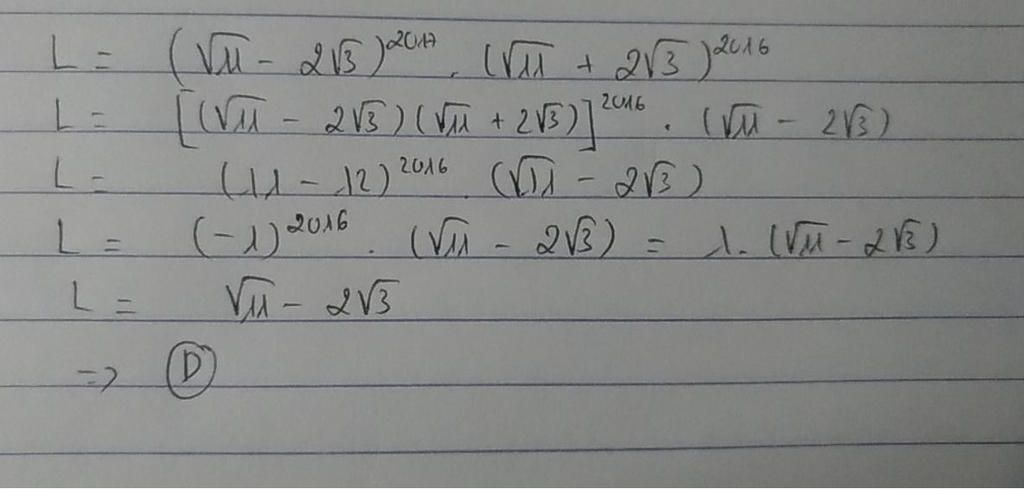 L = (√11 - 2√3)^2017 . (√11 + 2√3)^2016
L = [(√11 - 2√3)(√11 + 2√3)]^2016 . (√11 - 2√3)
L = (11 - 12)^2016 . (√11 - 2√3)
L = (-1)^2016 . (√11 - 2√3) = 1. (√11 - 2√3)
L = √11 - 2√3
=> D